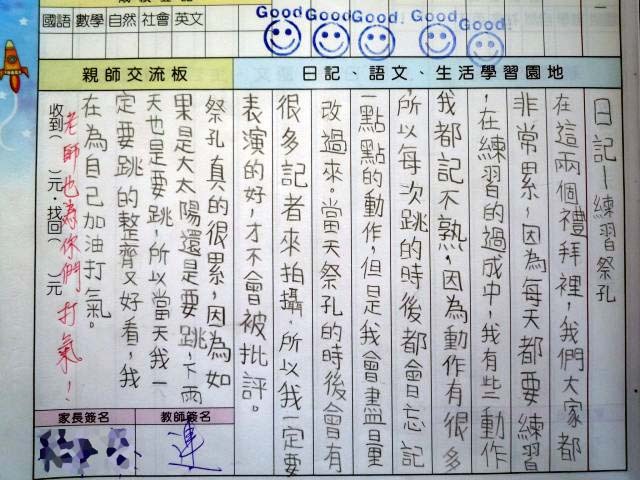 國語 數學 自然 社會 英文
Good Good Good Good Good
日記、語文、生活學習園地
日記—練習祭孔
在這兩個禮拜裡，我們大家都
非常累，因為每天都要練習
，在練習的過成中，我有些動作
我都記不熟，因為動作有很多
，所以每次跳的時後都會忘記
一點點的動作，但是我會盡量
改過來。當天祭孔的時後會有
很多記者來拍攝，所以我一定要
表演的好，才不會被批評。
親師交流板
祭孔真的很累，因為如
果是大太陽還是要跳，下雨
天也是要跳，所以當天我一
定要跳的整齊又好看，我
在為自己加油打氣。
老師也為你們打氣！
收到（ ）元，找回（ ）元
教師簽名
連
家長簽名